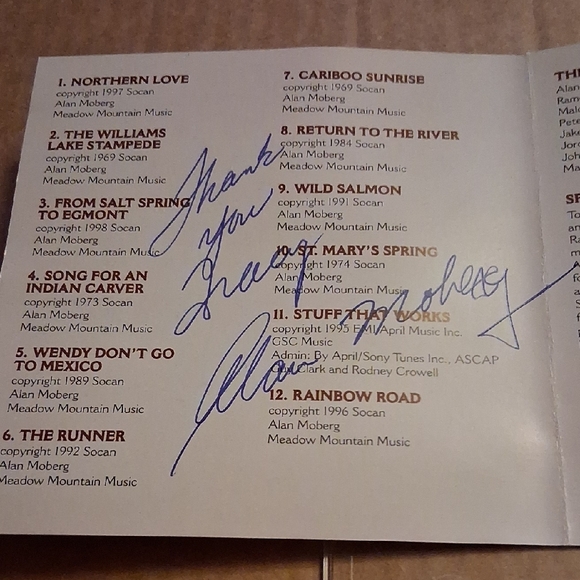 1. NORTHERN LOVE
copyright 1997 Socan
Alan Moberg
Meadow Mountain Music
2. THE WILLIAMS
LAKE STAMPEDE
copyright 1969 Socan
Alan Moberg
Meadow Mountain Music
3. FROM SALT SPRING
TO EGMONT
copyright 1998 Socan
Alan Moberg
Meadow Mountain Music
4. SONG FOR AN
INDIAN CARVER
copyright 1973 Socan
Alan Moberg
Meadow Mountain Music
5. WENDY DON'T GO
TO MEXICO
copyright 1989 Socan
Alan Moberg
Meadow Mountain Music
6. THE RUNNER
copyright 1992 Socan
Alan Moberg
Meadow Mountain Music
7. CARIBOO SUNRISE
copyright 1969 Socan
Alan Moberg
Meadow Mountain Music
8. RETURN TO THE RIVER
copyright 1984 Socan
Alan Moberg
Meadow Mountain Music
9. WILD SALMON
copyright 1991 Socan
Alan Moberg
Meadow Mountain Music
10. ST. MARY'S SPRING
copyright 1974 Socan
Alan Moberg
Meadow Mountain Music
11. STUFF THAT WORKS
copyright 1995 EMI/April Music Inc.
GSC Music
Admin: By April/Sony Tunes Inc., ASCAP
Guy Clark and Rodney Crowell
12. RAINBOW ROAD
copyright 1996 Socan
Alan Moberg
Meadow Mountain Music
Thank
you
Tracey
Alan Moberg